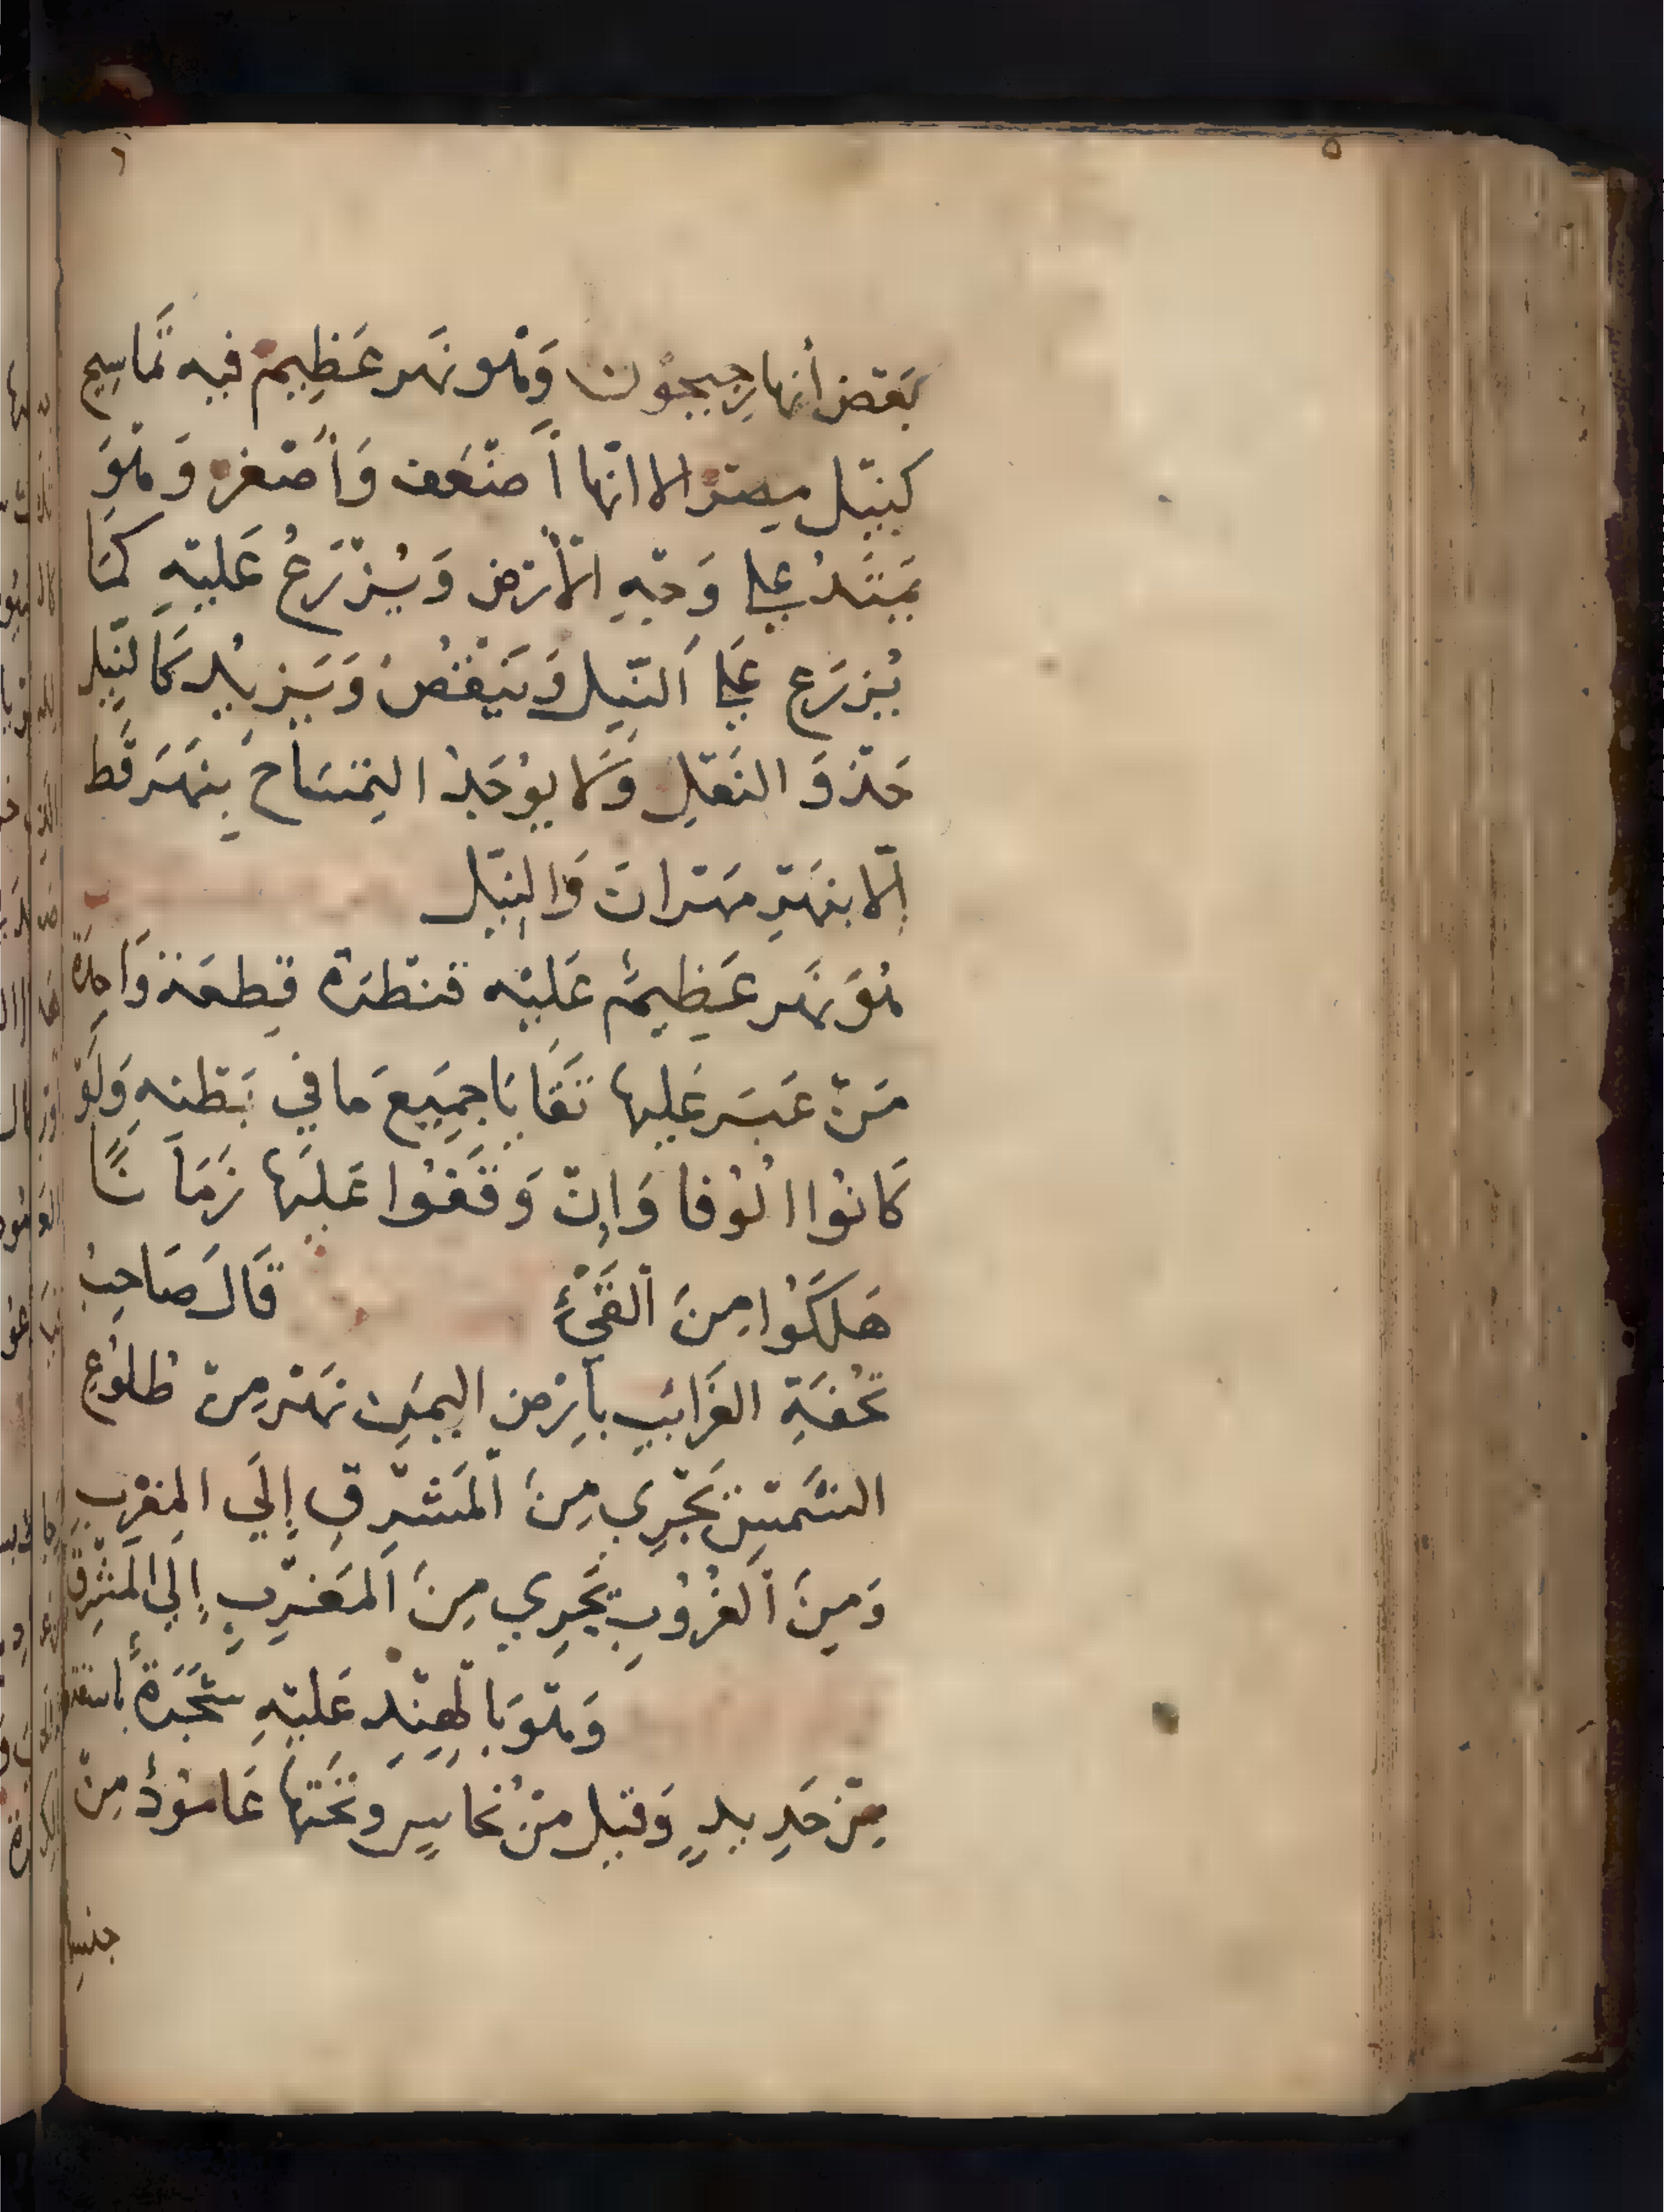 بَعْض أَنهارِ جِيحُون وَهْو نَهر عَظِيمْ فيه تَماسِيح
كنِيْل مِصْر الا انّها أَضْعَف وَأَصْغر وَهْوَ
يَمْتَدُ علي وَجْهِ الْأرْض وَيُزْرَعُ عَليْهِ كمَا
يُزرَع عَلَي اَلنّيِل وَيَنْقُصُ وَيَزِيْد كَالنّيِل
حَذْوَ النَعْلِ وَلَا يوُجَدْ التِمْسَاح بِنهَر قَط
اِلّا بنهَرِ مهْرانَ وَالنِيْل
هُوَ نَهر عَظِيمٌ عَليْه قنْطرَة قِطعَة وَاحِدَة
مَنْ عَبَر عَليها تَقَايَا جمِيَع مَا في بَطْنه وَلَوْ
كَانُوا الُوُفا وَاِنْ وَقَفُوا عَليَها زَمَانًا
هَلَكَوُا مِنَ اْلقَيْءِ قَالَ صَاحِبُ
تُحْفَةِ الغَرايَبِ بأَرْض اليمَن نهْر مِنْ طُلوُعِ
الشَمْسِ يَجْرِي مِنَ اْلمَشْرِقِ إِلَي المغْرِب
وَمِنَ اْلغُرُوُبِ يَجْرِي مِنَ اَلمَغْرِبِ إِلي المَشْرِق
وَهْوَ بالْهِنْدِ عَليْهِ شَجَرَةٌ باسقة
مِنْ حَدِيدٍ وَقيْل مِنْ نُحاسٍ وتَحْتها عَامُوُدٌ مِنْ